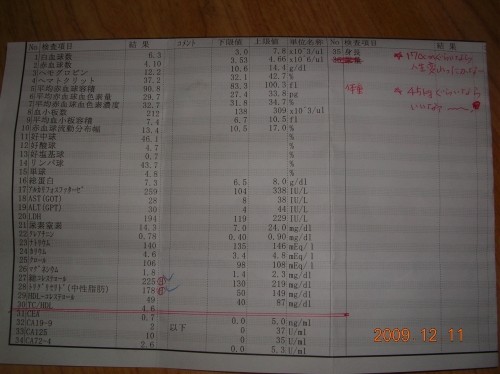 No 検査項目 結 果 コメント 下限値 上限値 単位名称 No 検査項目 結 果
1 白血球数 6.3 3.0 7.8 x10^3/ul 35 身長
2 赤血球数 4.10 3.53 4.66 x10^6/ul
3 ヘモグロビン 12.2 10.6 14.4 g/dl
4 ヘマトクリット 37.2 32.1 42.7 %
5 平均赤血球容積 90.8 83.3 100.3 fl
6 平均赤血球血色素量 29.7 27.4 33.8 pg
7 平均赤血球血色素濃度 32.7 31.8 34.7 %
8 血小板数 212 138 309 x10^3/ul
9 平均血小板容積 7.4 6.7 10.5 fl
10 赤血球流動分布幅 13.4 10.5 17.0 %
11 好中球 46.1 %
12 好酸球 4.7 %
13 好塩基球 0.7 %
14 リンパ球 43.7 %
15 単球 4.8 %
16 総蛋白 7.3 6.5 8.0 g/dl
17 アルカリフォスファターゼ 259 104 338 IU/L
18 AST(GOT) 28 8 38 IU/L
19 ALT(GPT) 30 4 44 IU/L
20 LDH 194 119 229 IU/L
21 尿素窒素 14.3 7.0 24.0 mg/dl
22 クレアチニン 0.78 0.40 0.90 mg/dl
23 ナトリウム 140 135 146 mEq/l
24 カリウム 4.6 3.4 4.8 mEq/l
25 クロール 106 98 108 mEq/l
26 マグネシウム 1.8 1.4 2.3 mg/dl
27 総コレステロール 225 H 130 219 mg/dl
28 トリグリセライド(中性脂肪) 178 H 50 149 mg/dl
29 HDL-コレステロール 49 40 87 mg/dl
30 TC/HDL 4.6
31 CEA 0.7 0.0 5.0 ng/ml
32 CA19-9 2 以下 0 37 U/ml
33 CA125 10 0 35 U/ml
34 CA72-4 2.6 0.0 5.3 U/ml
2009.12.11